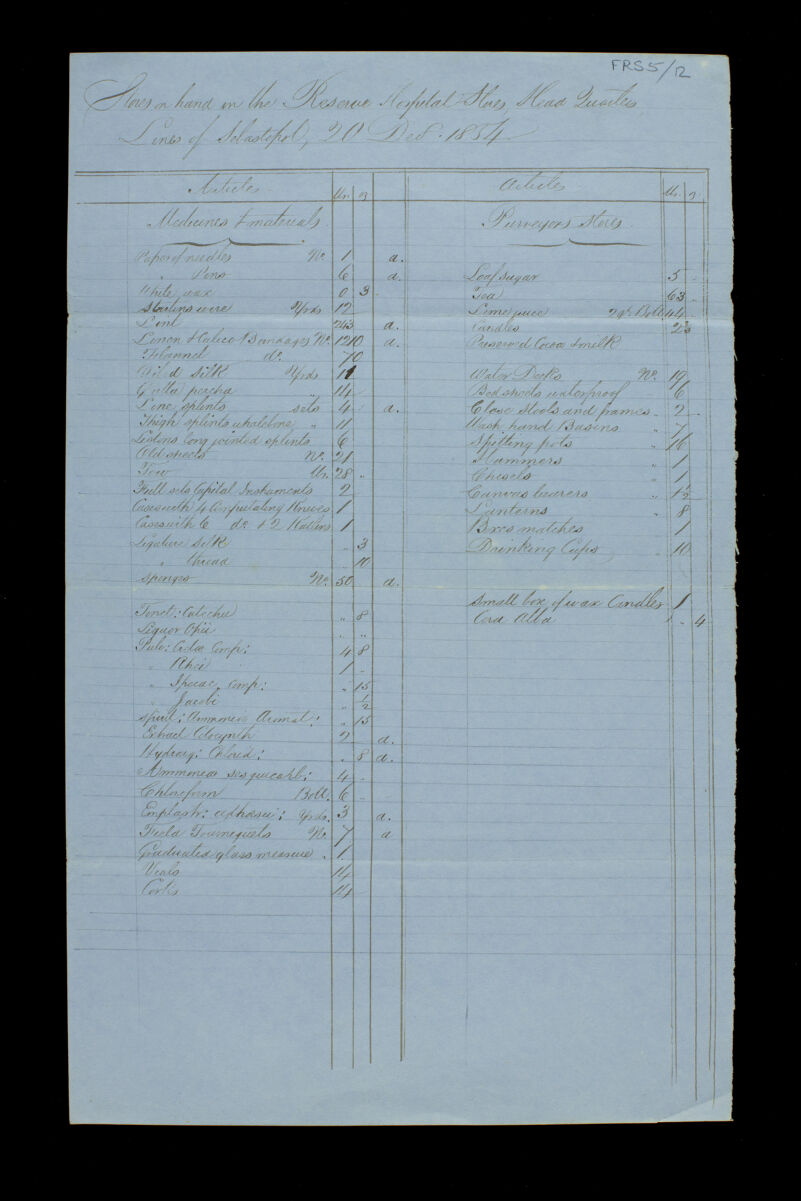 FRS 5/12
Stores on hand in the Reserve Hospital Stores Head Quarters
Lines of Sebastopol, 20 Decr. 1854
Articles
Medicines & materials
Paper of needles No. 1 a.
" Pens 6 a.
White wax 0 3
wire Yds 12
Lint 243 a.
Linen & Calico Bandages No. 1210 a.
Flannel do. 70
Oiled Silk Yds 11
Gutta percha " 14
Line splints sets 4 a.
Thigh splints whalebone " 11
Listons long jointed splints 6
Old sheets No. 21
Tow lbs. 28 "
Full sets Capital Instruments 2
Case with 4 Amputating Knives 1
Case with 6 do. & 2 Katlins 1
Ligature silk " 3
" thread " 10
Sponges No. 50 a.
Tinct: Catechu " 8
Liquor Opii " "
Pulv: Cretæ Comp: 4 8
" Rhei 1 -
" Ipecac. Comp: " 15
" Jacobi " 1/2
Spirit: Ammoniæ Aromat: " 15
Extract Colocynth 2 a.
Hydrarg: Chlorid: " 8 a.
Ammoniæ sesquicarb: 4 -
Chloroform Bott. 6 -
Emplastr: adhæsiv: Yds. 3 a.
Field Tourniquets No. 7 a
Graduated glass measure " 1
Vials 14
Corks 14
Articles
Purveyors Stores
Loaf sugar 5 -
Tea 63 -
Lime juice Bott 44 -
Candles
Preserved Cocoa & milk
Water Decks No. 19
Bed sheets waterproof " 6
Close stools and frames " 2
Wash hand Basins " 7
Spitting pots " 16
Hammers " 1
Chisels " 1
Canvas bearers "
Lanterns " 8
Box matches 1
Drinking Cups " 10
Small box of wax Candles 1
Cera Alba " 4